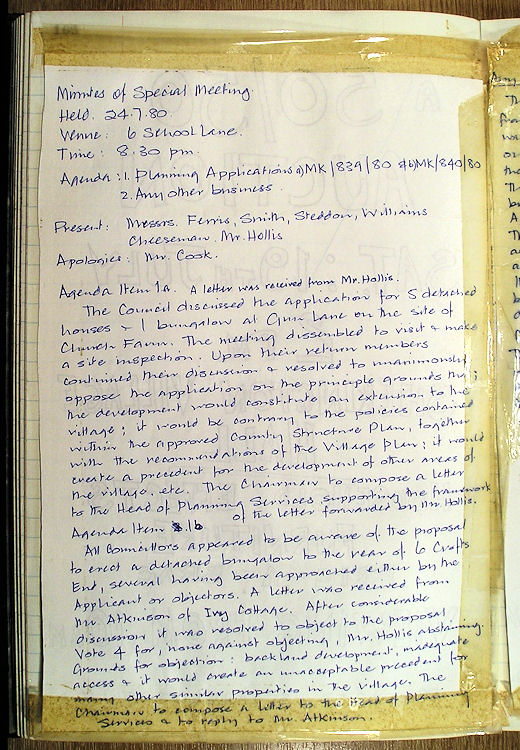 Minutes of Special Meeting.
Held. 24.7.80.
Venue: 6 School Lane.
Time: 8.30 pm.
Agenda: 1. Planning Applications a) MK/839/80 & b) MK/840/80
2. Any other business.
Present: Messrs. Ferris, Smith, Steddon, Williams
Cheeseman. Mr. Hollis
Apologies: Mr. Cook.
Agenda Item 1a. A letter was received from Mr. Hollis.
The Council discussed the application for 5 detached
houses & 1 bungalow at Gun Lane on the site of
Church Farm. The meeting dissembled to visit & make
a site inspection. Upon their return members
continued their discussion & resolved to unanimously
oppose the application on the principle grounds that;
the development would constitute an extension to the
village; it would be contrary to the policies contained
within the approved County Structure Plan, together
with the recommendations of the Village Plan; it would
create a precedent for the development of other areas of
the village, etc. The Chairman to compose a letter
to the Head of Planning Services supporting the framework
of the letter forwarded by Mr. Hollis.
Agenda Item 1b
All Councillors appeared to be aware of the proposal
to erect a detached bungalow to the rear of 6 Crofts
End, several having been approached either by the
Applicant or objectors. A letter was received from
Mr. Atkinson of Ivy Cottage. After considerable
discussion it was resolved to object to the proposal.
Vote 4 for, none against objecting, Mr. Hollis abstaining.
Grounds for objection: backland development, inadequate
access & it would create an unacceptable precedent for
many other similar properties in the village. The
Chairman to compose a letter to the Head of Planning
Services & to reply to Mr. Atkinson.